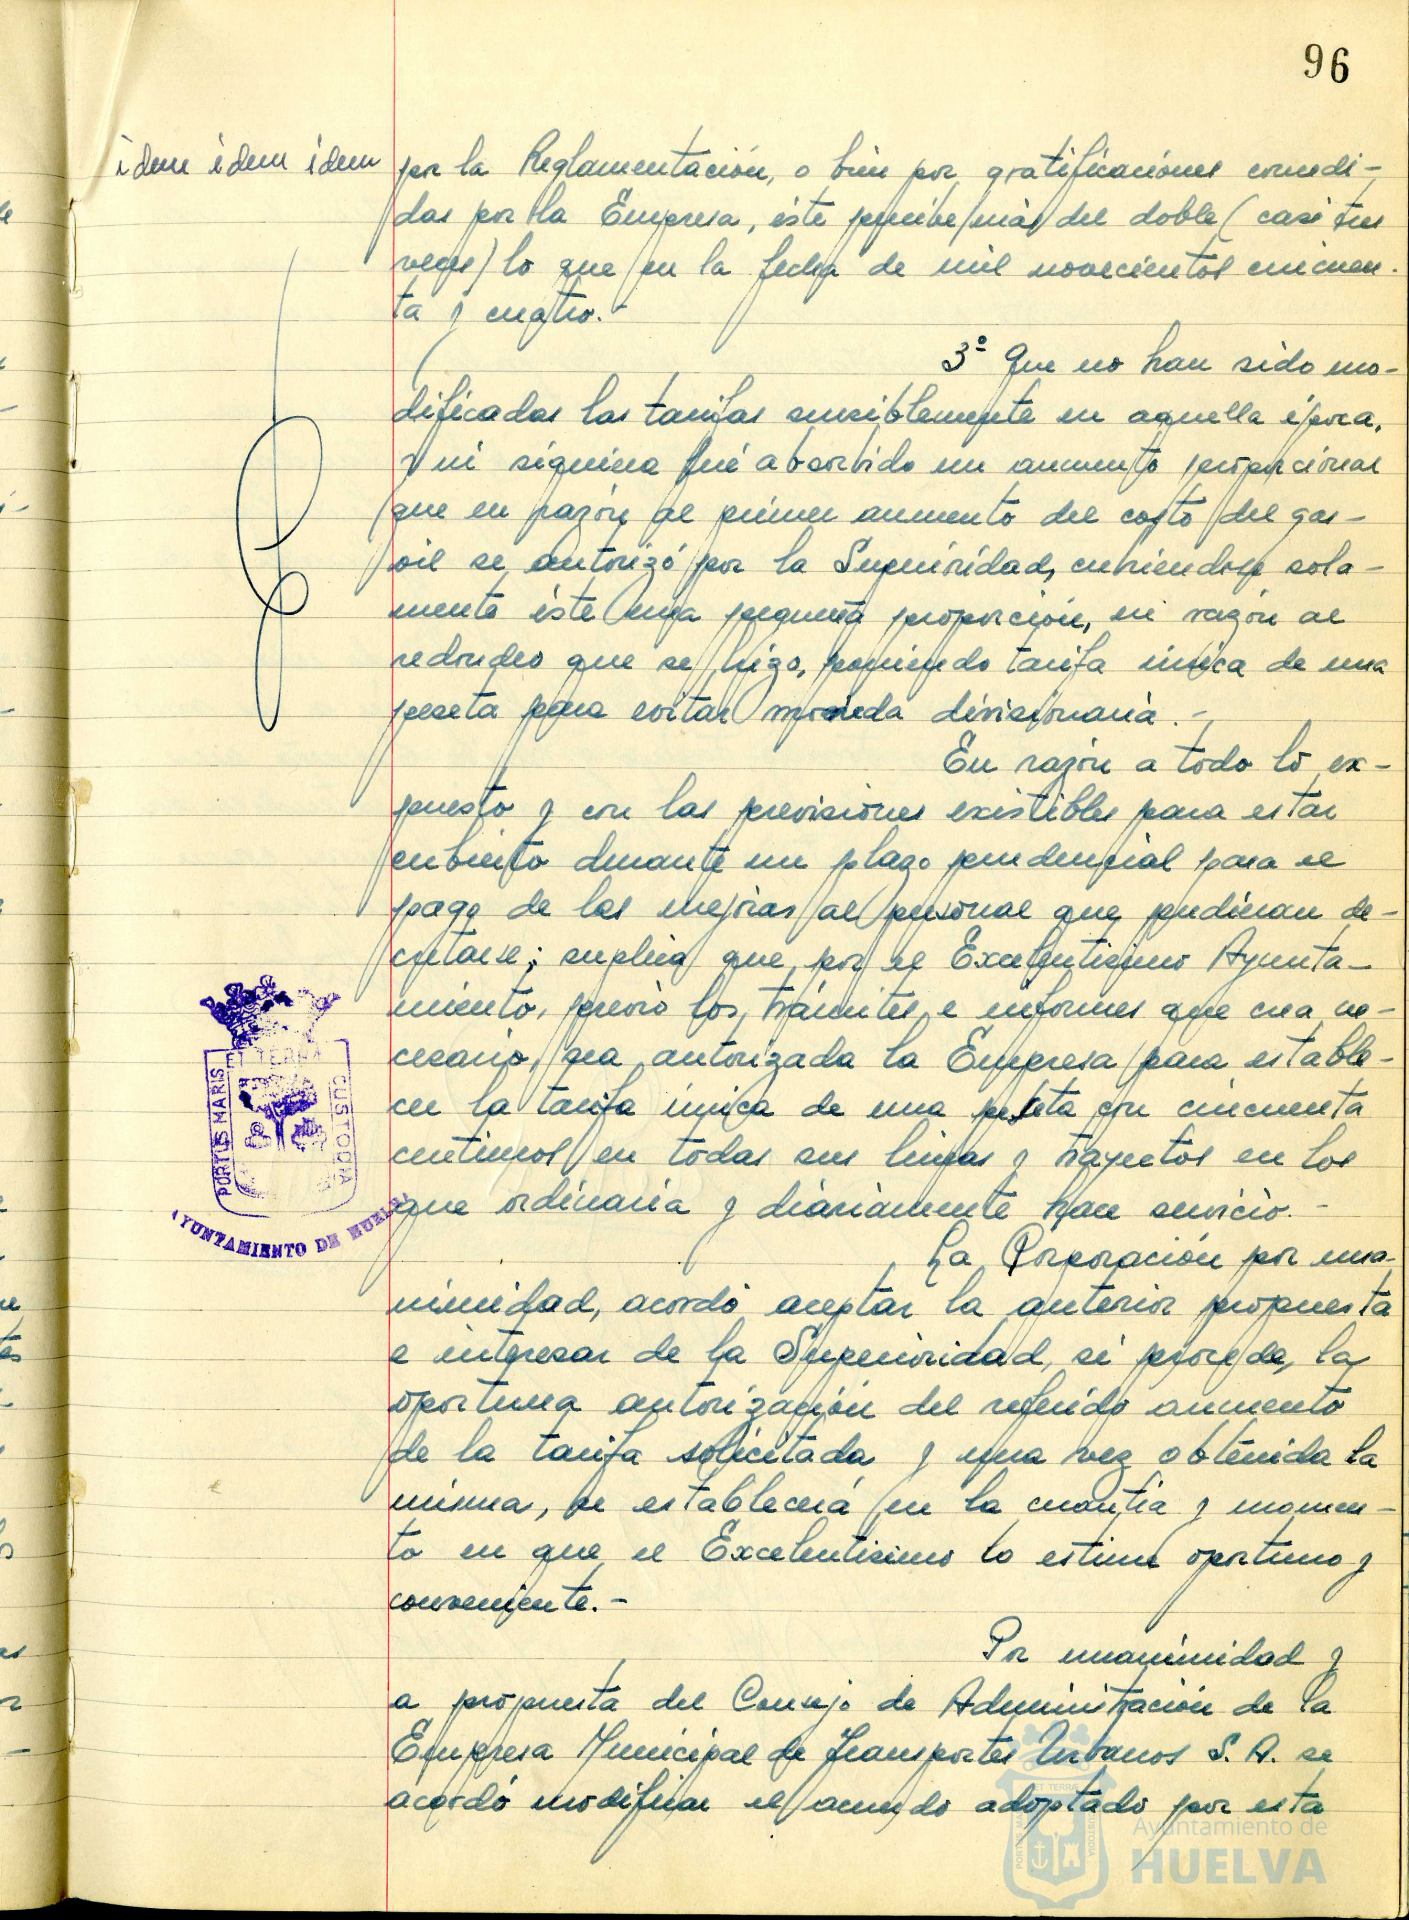 96
idem idem idem
por la Reglamentación, o bien por gratificaciones concedi-
das por la Empresa, éste percibe más del doble (casi tres
veces) lo que en la fecha de mil novecientos cincuen-
ta y cuatro.-
3º Que no han sido mo-
dificadas las tarifas sensiblemente en aquella época,
y ni siquiera fué absorbido un aumento proporcional
que en razón al primer aumento del costo del gas-
oil se autorizó por la Superioridad, cubriéndose sola-
mente éste una pequeña proporción, en razón al
redondeo que se hizo, poniendo tarifa única de una
peseta para evitar moneda divisionaria.-
En razón a todo lo ex-
puesto y con las previsiones existibles para estar
cubierto durante un plazo prudencial para el
pago de las mejoras al personal que pudieran de-
cretarse; suplica que por el Excelentísimo Ayunta-
miento, previo los trámites e informes que crea ne-
cesario, sea autorizada la Empresa para estable-
cer la tarifa única de una peseta con cincuenta
centimos en todas sus lineas y trayectos en los
que ordinaria y diariamente hace servicio.-
La Corporación por una-
nimidad, acordó aceptar la anterior propuesta
e interesar de la Superioridad, si procede, la
oportuna autorización del referido aumento
de la tarifa solicitada y una vez obtenida la
misma, se establecerá en la cuantía y momen-
to en que el Excelentísimo lo estime oportuno y
conveniente.-
Por unanimidad y
a propuesta del Consejo de Administración de la
Empresa Municipal de Transportes Urbanos S. A. se
acordó modificar el acuerdo adoptado por esta
PORTUS MARIS
ET TERRA
CUSTODIA
AYUNTAMIENTO DE HUELVA
Ayuntamiento de
HUELVA